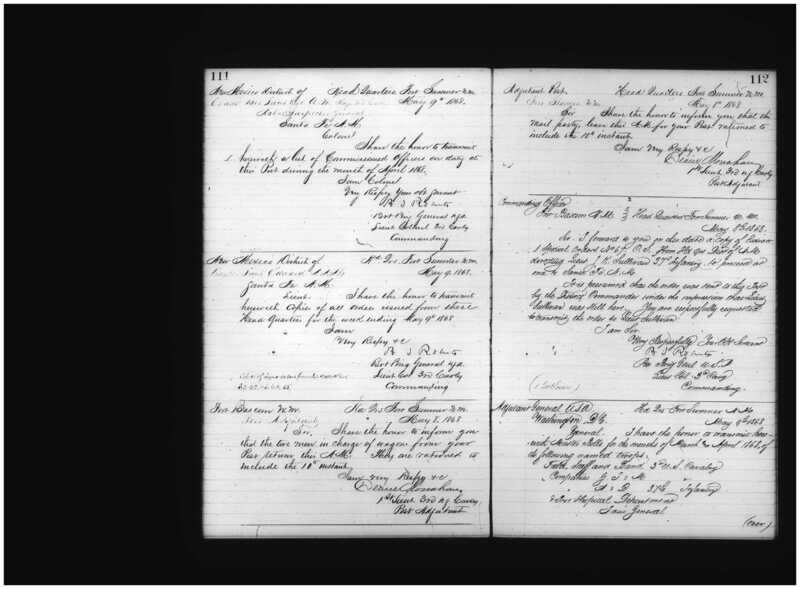 111
New Mexico District of Head Quarters Fort Sumner N.M.
May 9th 1868.
Inspector General
Santa Fe N.M.
Colonel
I have the honor to transmit
herewith a List of Commissioned Officers on duty at
this Post during the month of April 1868.
I am Colonel
Very Respy Your obt Servant
B S Roberts
Bvt Brig General USA
Lieut Colonel 3rd Cavly
Commanding
New Mexico District of Hd Qrs. Fort Sumner N.M.
May 9. 1868.
Santa Fe N.M.
Lieut. I have the honor to transmit
herewith Copies of all orders issued from these
Head Quarters for the week ending May 9th 1868
I am
Very Respy &c
B S Roberts
Bvt Brig General USA
Lieut Col 3rd Cavly
Commanding
Fort Bascom N.M. Hd Qrs Fort Sumner N.M.
Post Adjutant May 8. 1868.
Sir, I have the honor to inform you
that the two men in charge of wagon from your
Post return this A.M. They are rationed to
include the 10th instant.
I am Very Respy &c
Deane Monahan
1st Lieut 3rd Cavly
Post Adjutant
112
Adjutant Post. Head Quarters Fort Sumner N.M.
Fort N.M. May 8th 1868
Sir I have the honor to inform you that the
mail party, leave this A.M. for your Post rationed to
include the 10th instant.
I am Very Respy &c
Deane Monahan
1st Lieut 3rd Cavly
Post Adjutant
Commanding Officer
Fort Bascom N.M. Head Quarters Fort Sumner N.M.
May 8th 1868.
Sir. I forward to you a copy of
Special Orders No from Hd Qrs Dist of N.M.
directing Lieut J. K. Sullivan 37th Infantry to proceed at
once to N.M.
It is presumed that the order was sent to this Post
by the District Commander under the impression that Lieut
Sullivan was still here. You are respectfully requested
to transmit the order to Lieut Sullivan
I am Sir
Very Respectfully Your Obt Servant
B S Roberts
Bvt Brig Genl U.S.A
Lieut Col. 3rd Cavy
Commanding.
(1 Enclosure)
Adjutant General USA Hd Qrs Fort Sumner N.M.
Washington D.C. May 8th 1868.
General I have the honor to transmit
Muster Rolls for the months of March & April 1868, of
the following named troops.
Field, Staff and Band 3rd U.S. Cavalry
Companies G. I & M
37th Infantry
Hospital Department
I am General
(over)